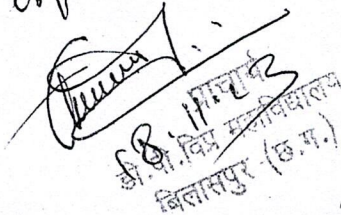 प्राचार्य
18.11.23
डी.पी.विप्र महाविद्यालय
बिलासपुर (छ.ग.)